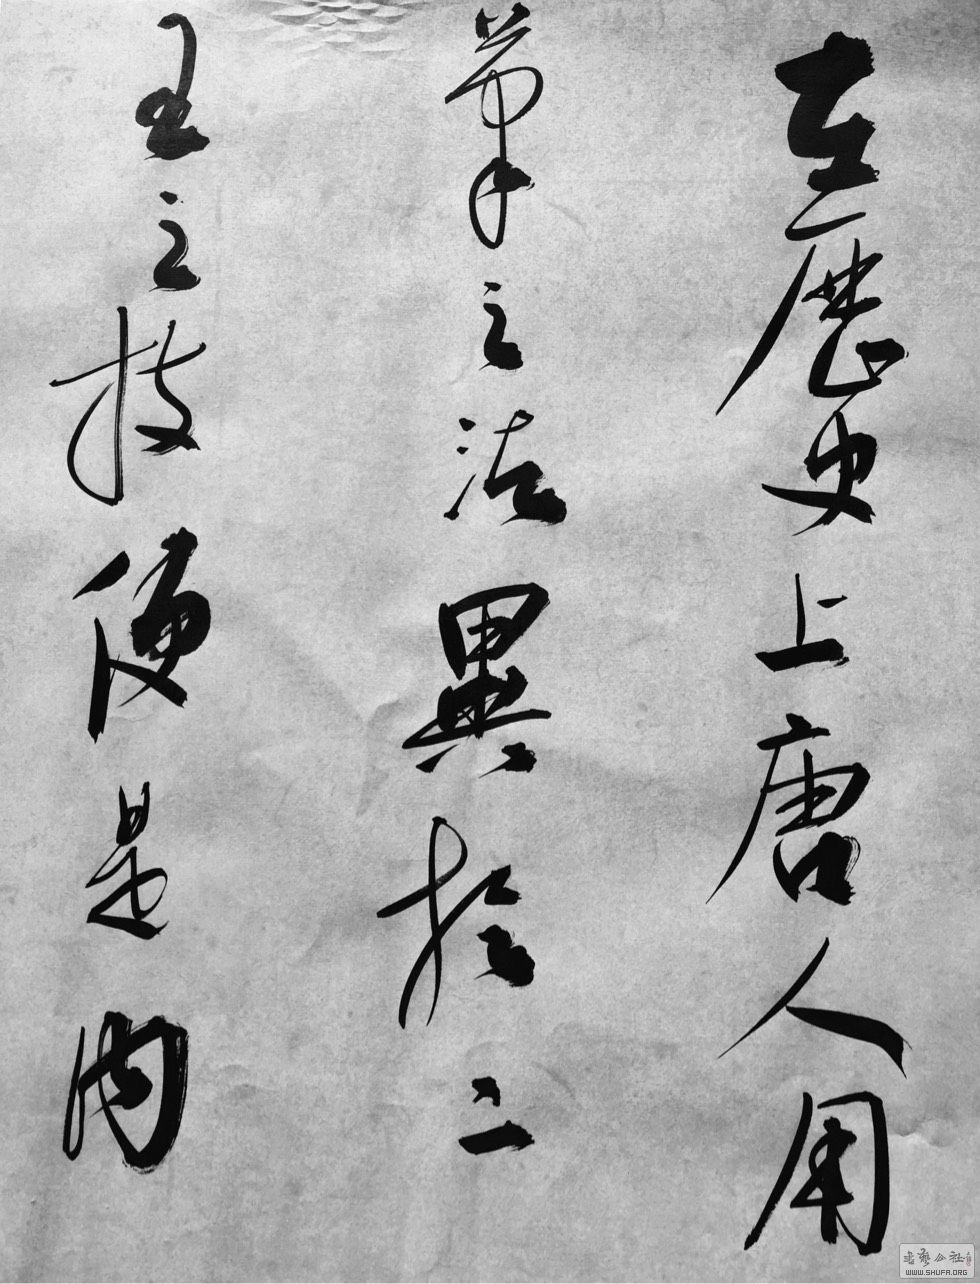 在歷史上唐人用
筆之法異於二
王之技便是內
书艺公社
WWW.SHUFA.ORG